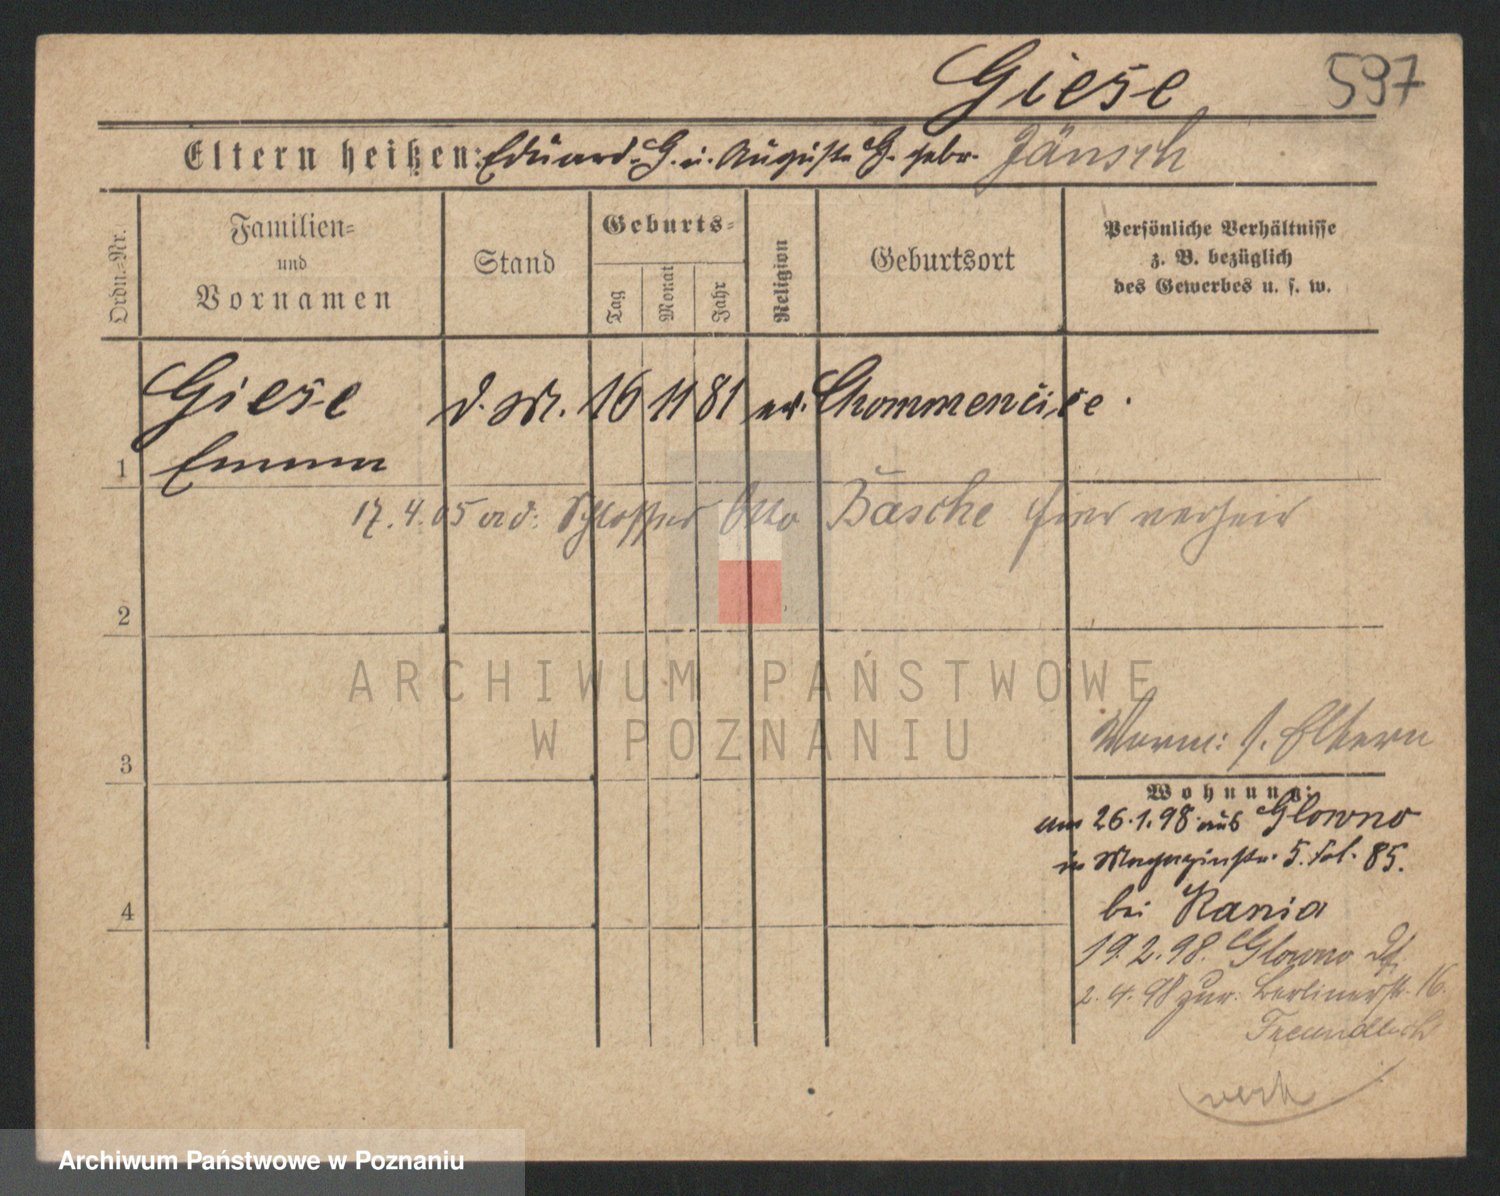 Giese 597
Eltern heißen: Eduard G. u. Auguste G. gebr. Jänsch
Ordn.-Nr.
Familien-
und
Vornamen
Stand
Geburts-
Tag
Monat
Jahr
Religion
Geburtsort
Persönliche Verhältnisse
z. B. bezüglich
des Gewerbes u. s. w.
Giese d. M. 16 11 81 ev. Chommencice.
1 Emma
17.4.05 Schlosser Otto Bäsche hier verheir
2
ARCHIWUM PAŃSTWOWE
W POZNANIU
Vorm: s. Eltern
3
Wohnung:
am 26.1.98 aus Glowno
in Magazinstr. 5. fol. 85.
4
bei Kania
19.2.98. Glowno
2.4.98 zur. Berlinerstr. 16.
Freundlich
verh
Archiwum Państwowe w Poznaniu